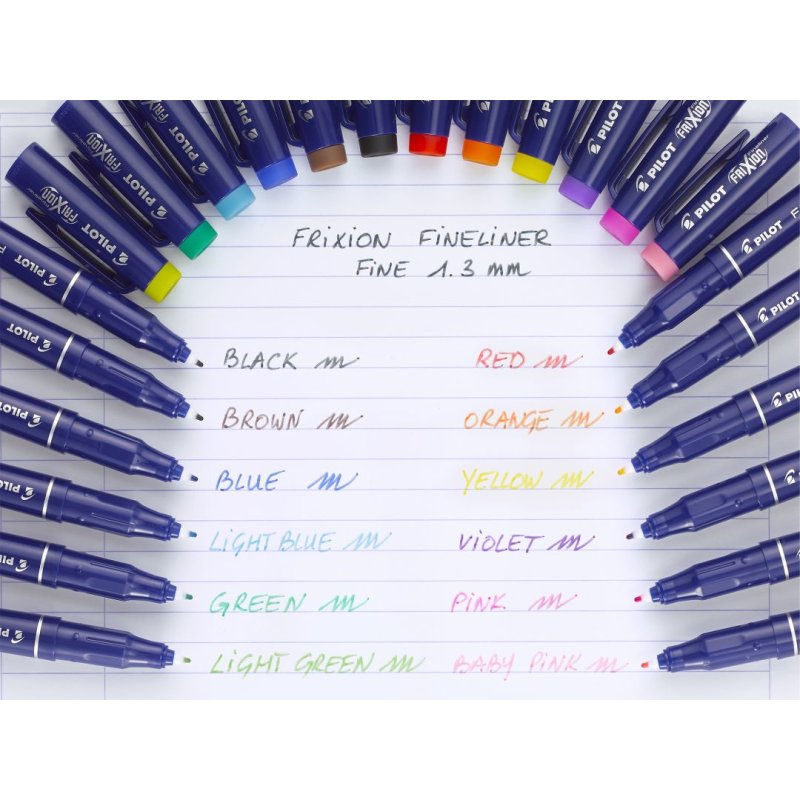 PILOT FRIXION
PILOT FRIXION
PILOT
PILOT
PILOT
PILOT FRIXION
PILOT FRIXION
FRIXION FINELINER
FINE 1.3 mm
PILOT
PILOT
PILOT
PILOT
PILOT
PILOT
BLACK m
RED m
BROWN m
ORANGE m
BLUE m
YELLOW m
LIGHT BLUE m
VIOLET m
GREEN m
PINK m
LIGHT GREEN m
BABY PINK m